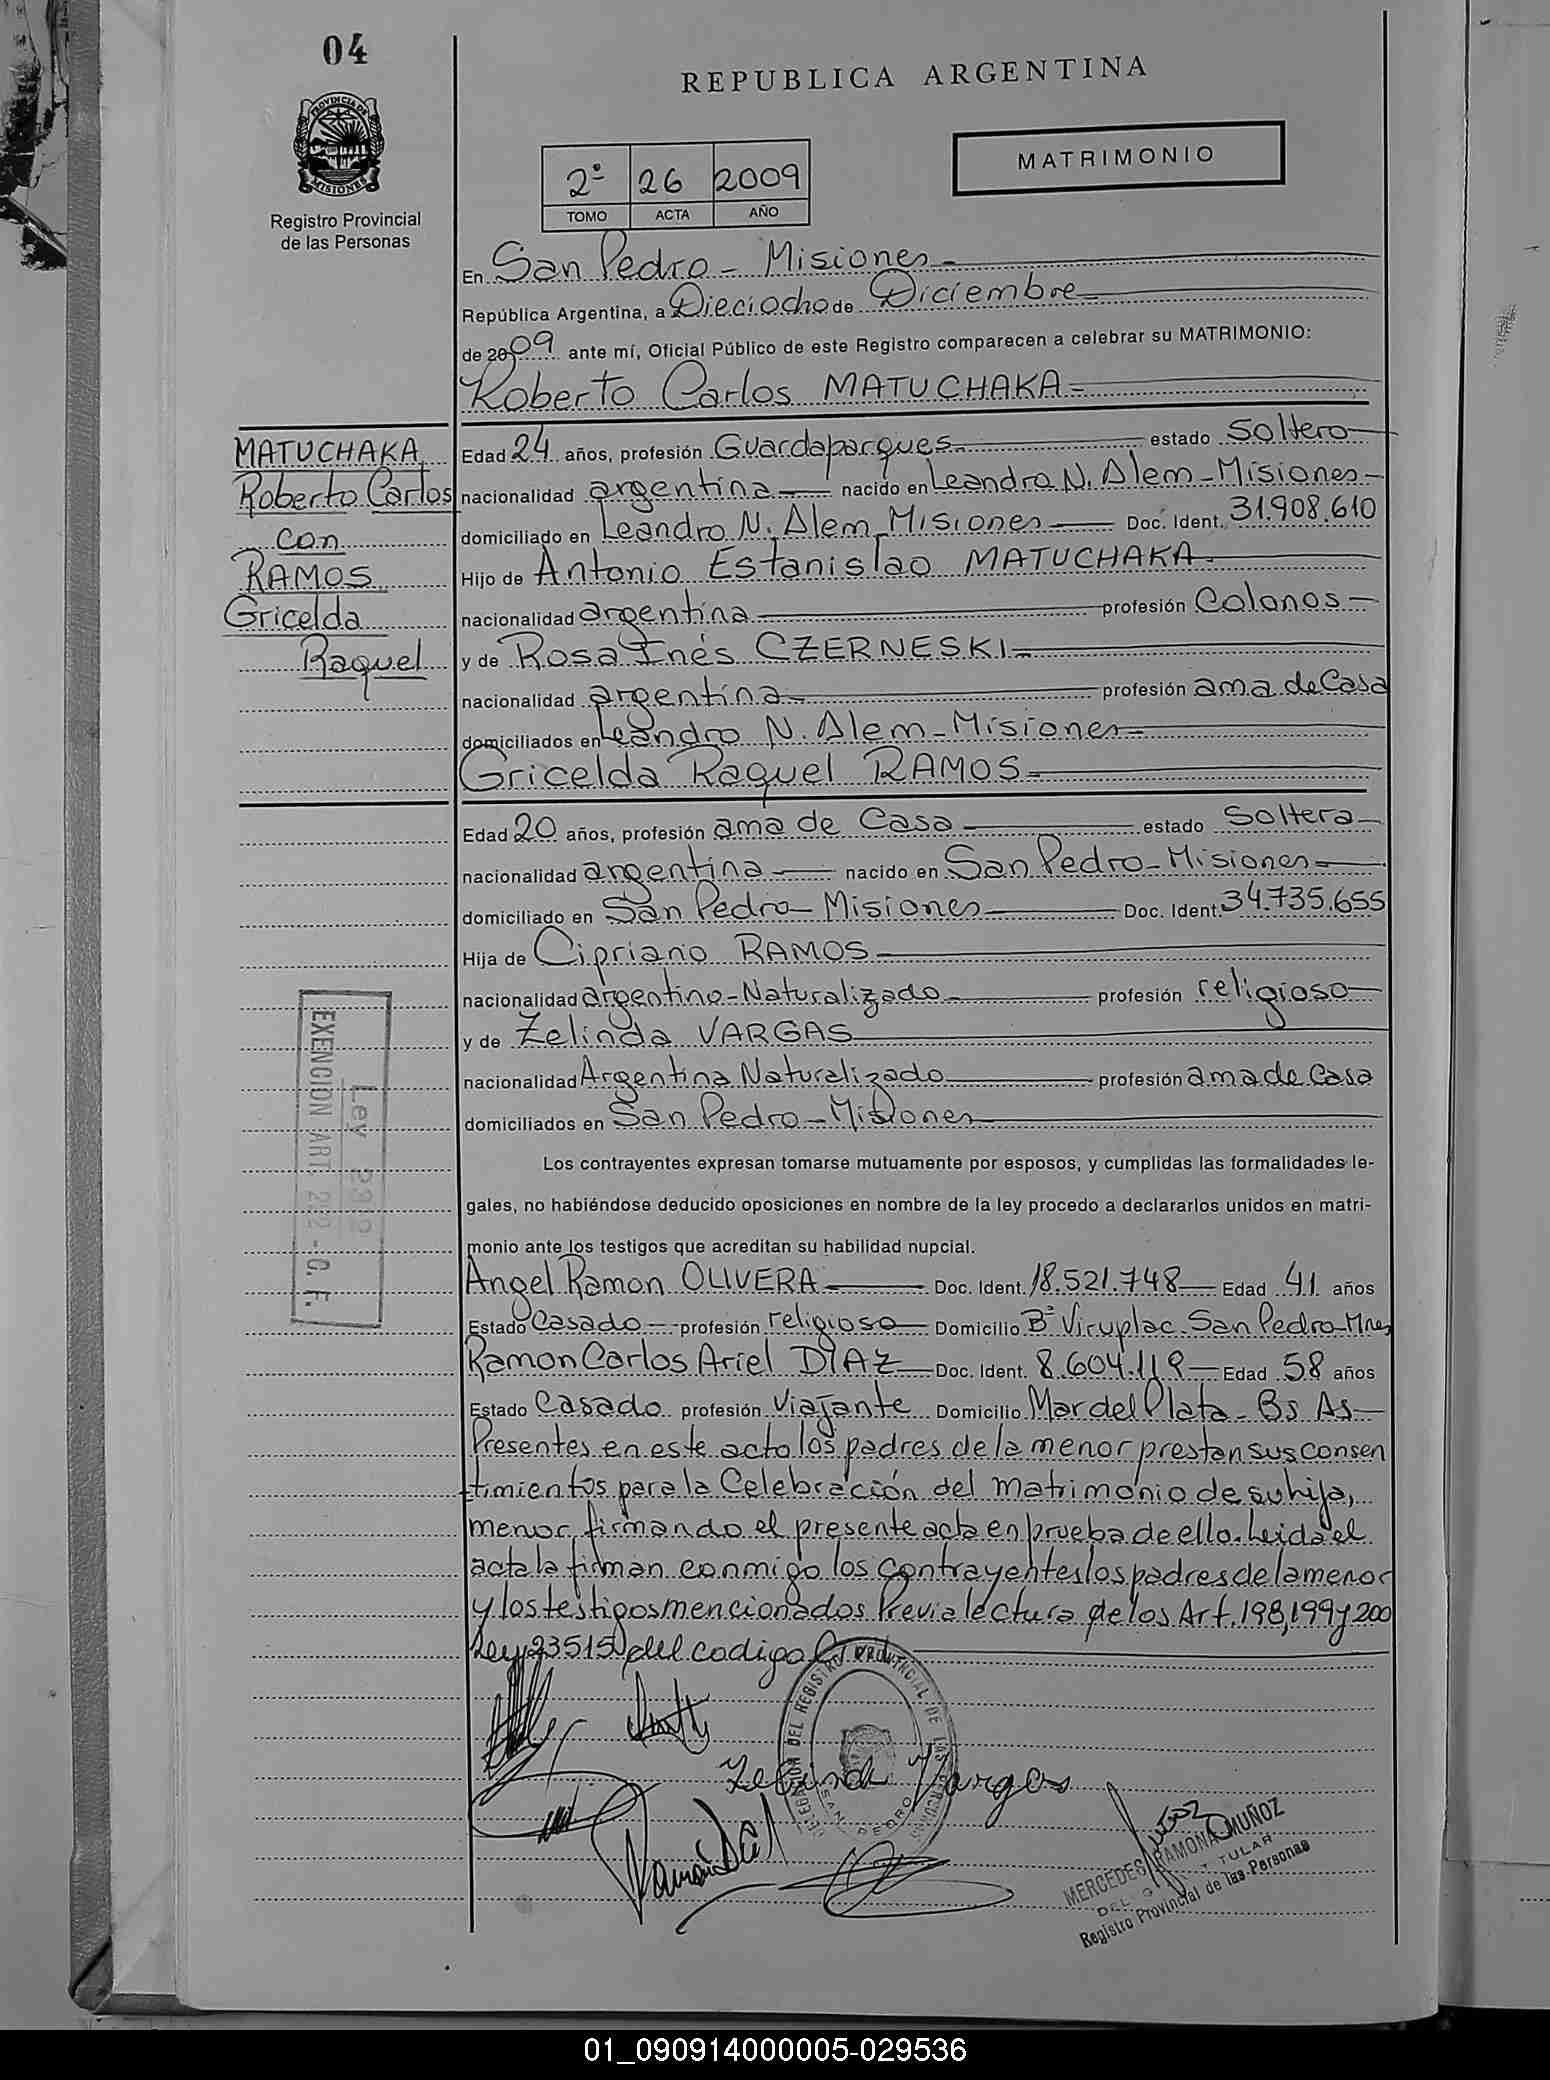 04
REPUBLICA ARGENTINA
PROVINCIA DE
MISIONES
Registro Provincial
de las Personas
MATRIMONIO
2º 26 2009
TOMO ACTA AÑO
En San Pedro - Misiones
República Argentina, a Dieciocho de Diciembre
de 2009 ante mí, Oficial Público de este Registro comparecen a celebrar su MATRIMONIO:
Roberto Carlos MATUCHAKA
MATUCHAKA
Roberto Carlos
con
RAMOS
Gricelda
Raquel
Edad 24 años, profesión Guardaparques estado Soltero
nacionalidad argentina nacido en Leandro N. Alem - Misiones
domiciliado en Leandro N. Alem - Misiones Doc. Ident. 31.908.610
Hijo de Antonio Estanislao MATUCHAKA
nacionalidad argentina profesión Colonos
y de Rosa Inés CZERNESKI
nacionalidad argentina profesión ama de Casa
domiciliados en Leandro N. Alem - Misiones
Gricelda Raquel RAMOS
Edad 20 años, profesión ama de Casa estado Soltera
nacionalidad argentina nacido en San Pedro - Misiones
domiciliado en San Pedro - Misiones Doc. Ident. 34.735.655
Hija de Cipriano RAMOS
nacionalidad argentino - Naturalizado profesión religioso
y de Zelinda VARGAS
nacionalidad Argentina Naturalizado profesión ama de Casa
domiciliados en San Pedro - Misiones
Ley
EXENCION ART. 222 - C. F.
Los contrayentes expresan tomarse mutuamente por esposos, y cumplidas las formalidades le-
gales, no habiéndose deducido oposiciones en nombre de la ley procedo a declararlos unidos en matri-
monio ante los testigos que acreditan su habilidad nupcial.
Angel Ramon OLIVERA Doc. Ident. 18.521.748 Edad 41 años
Estado Casado profesión religioso Domicilio Bº Viruplac. San Pedro - Mnes
Ramon Carlos Ariel DIAZ Doc. Ident. 8.604.119 Edad 58 años
Estado Casado profesión Viajante Domicilio Mar del Plata - Bs As
Presentes en este acto los padres de la menor prestan sus consen
timientos para la Celebración del matrimonio de su hija,
menor, firmando el presente acta en prueba de ello. Leida el
acta la firman conmigo los contrayentes los padres de la menor
y los testigos mencionados Previa lectura de los Art. 198,199 y 200
Ley 23515 del codigo C.
DELEGACION DEL REGISTRO PROVINCIAL DE LAS PERSONAS
SAN PEDRO
Zelinda Vargas
MERCEDES RAMONA MUÑOZ
TITULAR
Registro Provincial de las Personas
01_090914000005-029536